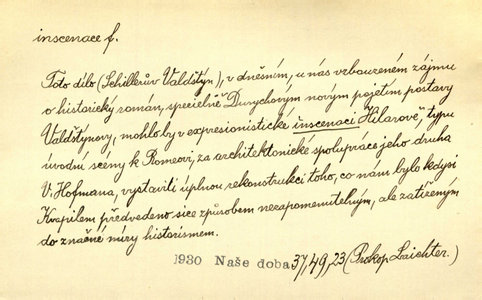 inscenace f.
Toto dílo (Schillerův Valdštýn), v dněsním, u nás vzbouzeném zájmu
o historický román, specielně Durychovým novým pojetím postavy
Valdštýnovy, mohlo by v expresionistické inscenaci Hilarově, typu
úvodní scény k Romeovi, za architektonické spolupráce jeho druha
V. Hofmana, vystaviti úplnou rekonstrukci toho, co nám bylo kdysi
Kvapilem předvedeno sice způsobem nezapomenutelným, ale zatíženým
do značné míry historismem.
1930 Naše doba 37,49,23 (Prokop Laichter.)